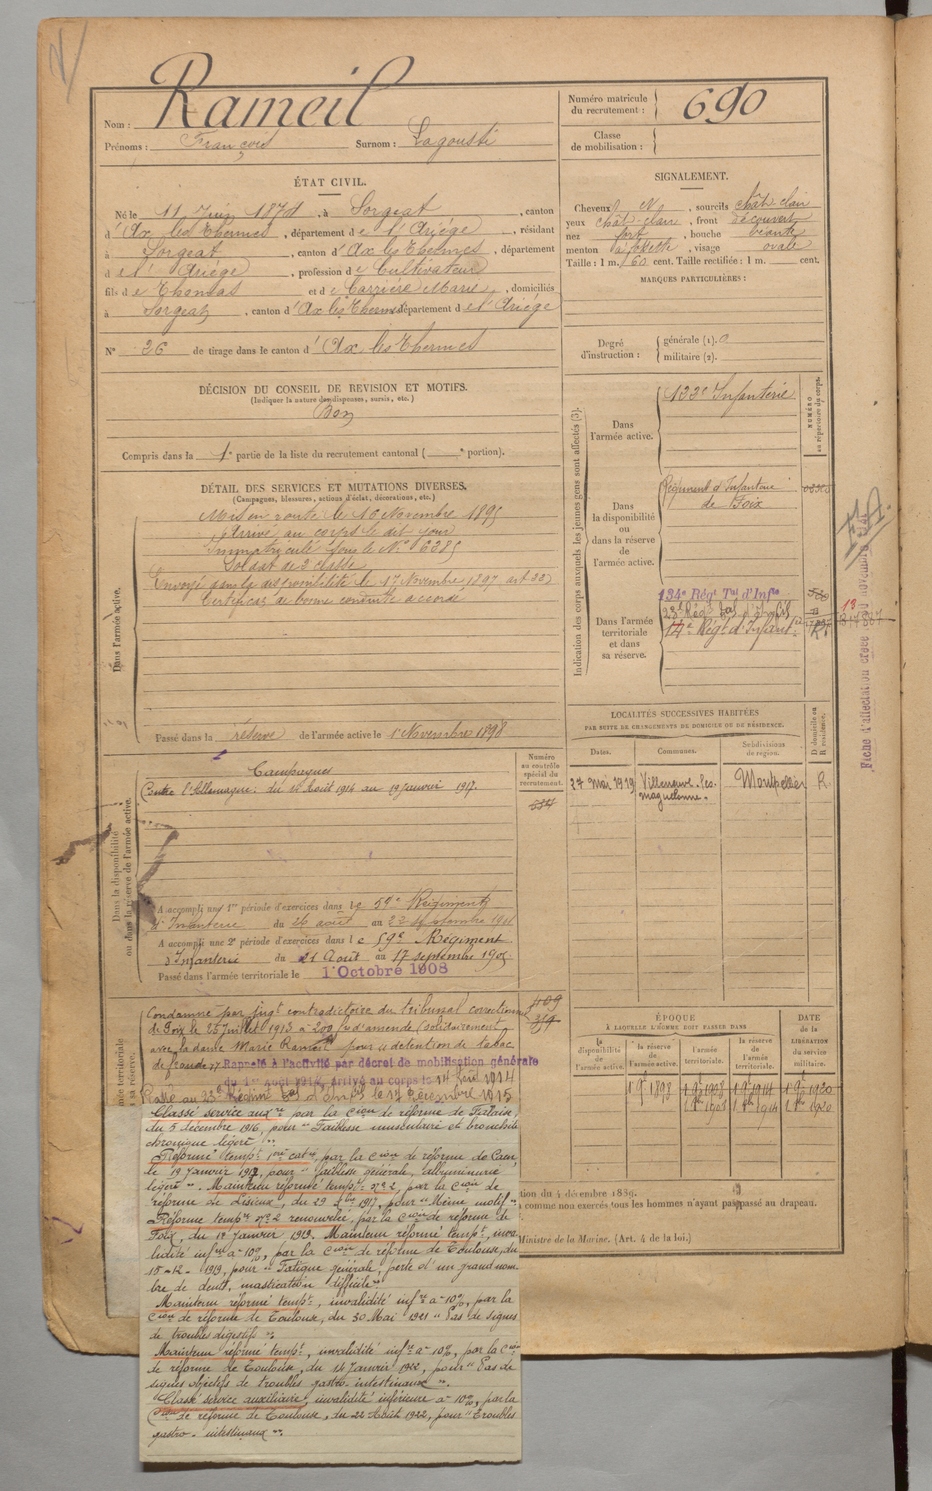 Nom : Rameil
Prénoms : François Surnom : Lagousti
Numéro matricule du recrutement : 690
Classe de mobilisation :
ÉTAT CIVIL.
Né le 11 Juin 1874, à Sorgeat, canton
d'Ax les Thermes, département de l'Ariège, résidant
à Sorgeat, canton d'Ax les Thermes, département
de l'Ariège, profession de Cultivateur
fils de Thomas et de Carrière Marie, domiciliés
à Sorgeat, canton d'Ax les Thermes, département de l'Ariège
N° 26 de tirage dans le canton d'Ax les Thermes
SIGNALEMENT.
Cheveux N, sourcils chât-clair
yeux chât-claire, front découvert
nez fort, bouche
menton à fossette, visage ovale
Taille : 1 m. 60 cent. Taille rectifiée : 1 m. cent.
MARQUES PARTICULIÈRES :
Degré d'instruction : générale (1). 0
militaire (2).
DÉCISION DU CONSEIL DE REVISION ET MOTIFS.
(Indiquer la nature des dispenses, sursis, etc.)
Bon
Compris dans la 1e partie de la liste du recrutement cantonal ( e portion).
DÉTAIL DES SERVICES ET MUTATIONS DIVERSES.
(Campagnes, blessures, actions d'éclat, décorations, etc.)
Dans l'armée active.
Mis en route le 16 Novembre 1895
Arrivé au corps le dit jour
Immatriculé sous le N° 6285
Soldat de 2e classe
Envoyé dans la disponibilité le 17 Novembre 1897
Certificat de bonne conduite accordé
Passé dans la réserve de l'armée active le 1 Novembre 1898
Indication des corps auxquels les jeunes gens sont affectés (3).
NUMÉRO au répertoire du corps.
Dans l'armée active.
133e Infanterie
Dans la disponibilité ou dans la réserve de l'armée active.
Régiment d'Infanterie
de Foix
Dans l'armée territoriale et dans sa réserve.
134e Régt Tal d'Infie
23e Régt Tal d'Infie
14e Régt d'Infant
Fiche d'affectation créée
LOCALITÉS SUCCESSIVES HABITÉES
PAR SUITE DE CHANGEMENTS DE DOMICILE OU DE RÉSIDENCE.
Dates. Communes. Subdivisions de région. D domicile ou R résidence.
27 Mai 1919 Villeneuve-les-maguelonne. Montpellier R.
Numéro au contrôle spécial du recrutement.
Dans la disponibilité ou dans la réserve de l'armée active.
Campagnes
Contre l'Allemagne. du 14 Août 1914 au 19 Janvier 1917.
A accompli une 1re période d'exercices dans le 59e Régiment
d'Infanterie du 26 août au 22 septembre 1901
A accompli une 2e période d'exercices dans le 59e Régiment
d'Infanterie du 21 Août au 17 septembre 1905
Passé dans l'armée territoriale le 1 Octobre 1908
Condamné par jugt contradictoire du tribunal correctionnel
de Foix le 25 Juillet 1913 à 200 f d'amende (solidairement
avec la dame Marie Rameil pour détention de tabac
de fraude
Rappelé à l'activité par décret de mobilisation générale
du 1er août 1914, arrivé au corps le 14 août 1914
Passé au 23e Régiment Tal d'Infie le 17 Décembre 1915
Classé service auxre par la Cion de réforme de Falaise,
du 5 décembre 1916, pour "Faiblesse musculaire et bronchite
chronique légère".
Réformé tempt 1re catie, par la Cion de réforme de Caen,
le 19 Janvier 1917, pour "faiblesse générale, albuminurie
légère". Maintenu réformé tempt n°2, par la Cion de
réforme de Lisieux, du 29 1917, pour "Même motif".
Réforme tempre n°2 renouvelée, par la Cion de réforme de
Foix, du 14 Janvier 1919. Maintenu réformé tempt, inva-
lidité infre à 10%, par la Cion de réforme de Toulouse, du
15-12-1919, pour "Fatigue générale, perte d'un grand nom-
bre de dents, mastication difficile".
Maintenu réformé tempt, invalidité infre à 10%, par la
Cion de réforme de Toulouse, du 30 Mai 1921 "Pas de signes
de troubles digestifs".
Maintenu réformé tempt, invalidité infre à 10%, par la Cion
de réforme de Toulouse, du 14 Janvier 1922, pour "Pas de
signes objectifs de troubles gastro-intestinaux".
Classé service auxiliaire, invalidité inférieure à 10%, par la
Cion de réforme de Toulouse, du 22 Août 1922, pour "Troubles
gastro-intestinaux".
ÉPOQUE
À LAQUELLE L'HOMME DOIT PASSER DANS
DATE de la LIBÉRATION du service militaire.
la disponibilité de l'armée active. la réserve de l'armée active. l'armée territoriale. la réserve de l'armée territoriale.
1 9bre 1898 1 9bre 1908 1 9bre 1914 1 9bre 1920
1 8bre 1908 1 8bre 1914 1 8bre 1920
tion du 4 décembre 1889.
comme non exercés tous les hommes n'ayant pas passé au drapeau.
Ministre de la Marine. (Art. 4 de la loi.)